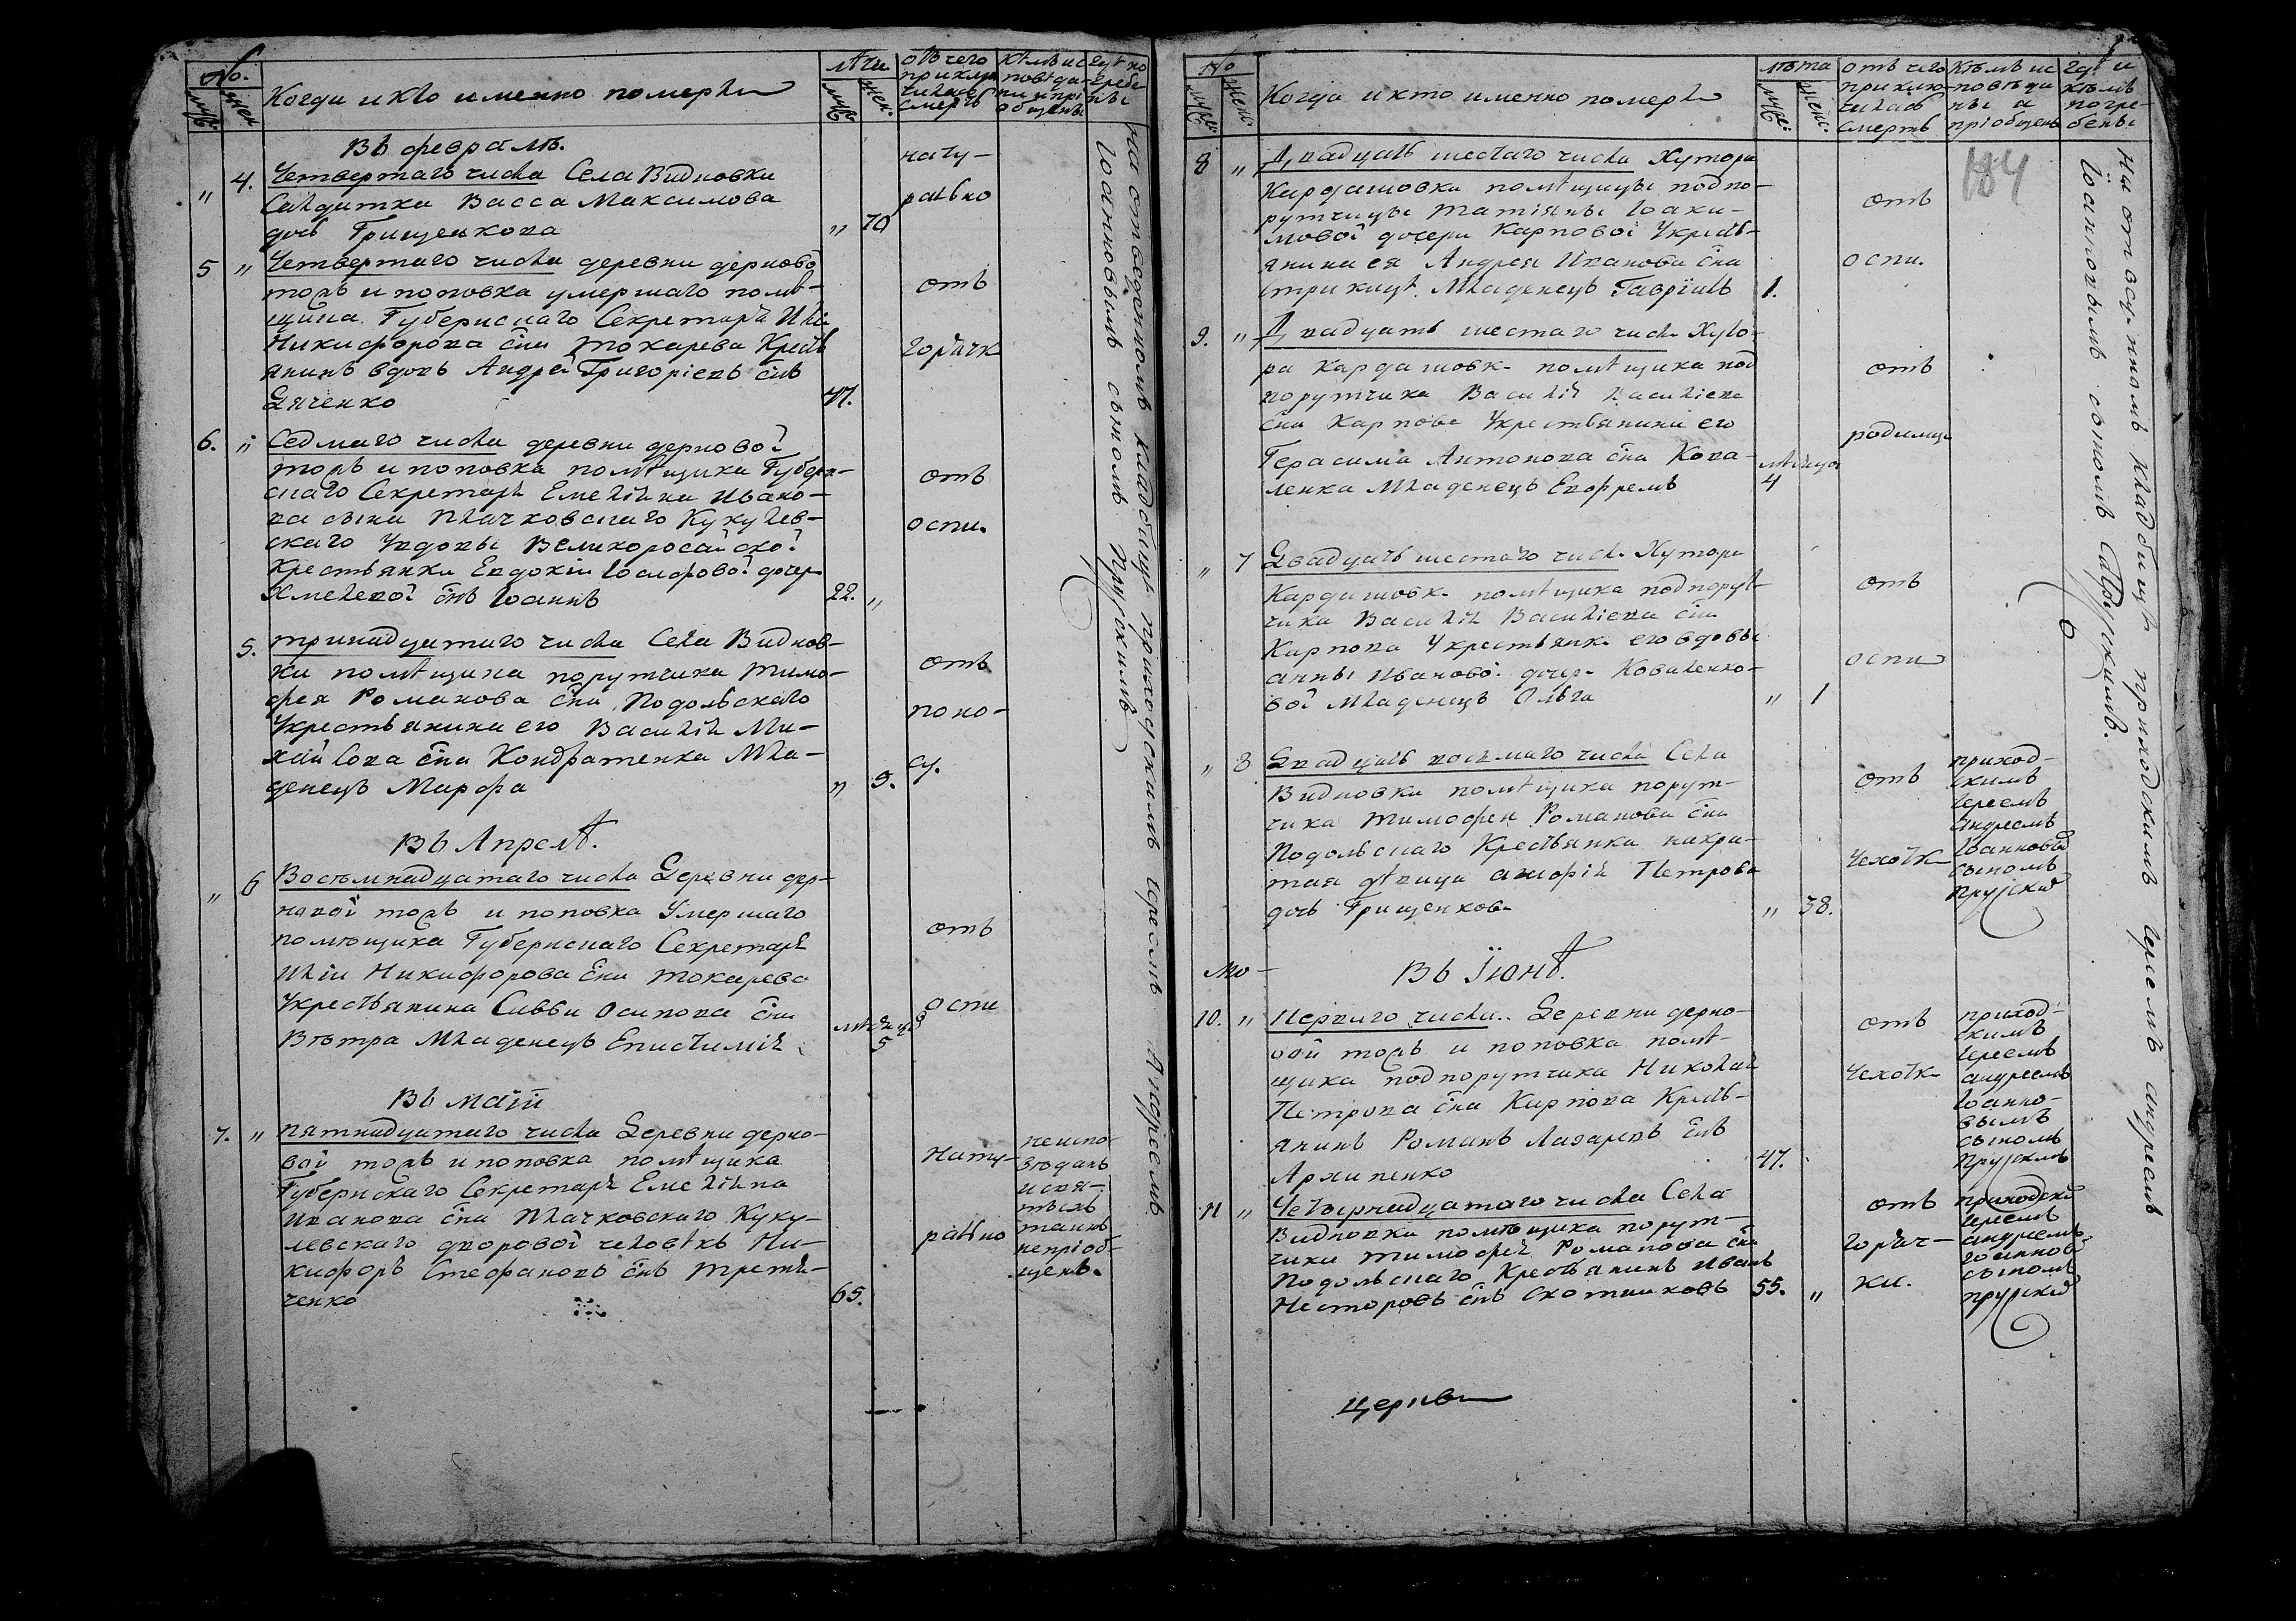 №.
муж.
жен.
Когда и кто именно померли
лѣта
муж.
жен.
отчего
приклю
чилась
смерть
Кѣмъ ис
повѣда-
ни и прі
общены
Гдѣ по
гребе
ны
Въ февралѣ.
" 4. Четвертаго числа Села Видновки
Салдатка Васса Максимова
дочь Грищенкова " 70
нату-
рально
5 " Четвертаго числа деревни дерново
тожъ и поповка умершаго помѣ-
щика Губернскаго Секретаря Иліи
Никифорова сна Токарева Кресть
янинъ вдовъ Андрей Григоріевъ снъ
Дяченко 47.
отъ
горячк
6. " Седмаго числа деревни дерновой
тожъ и поповка помѣщика Губерн-
скаго Секретаря Емеліяна Ивано-
ва сына Плачковскаго Кукулев-
скаго Увдовы Великоросайской
Крестьянки Евдокіи Іосифовой дочер
Хмелевой снъ Іоаннъ 22. "
отъ
оспи.
5. тринадцатаго числа Села Виднов-
ки помѣщика порутчика Тимо-
фея Романова сна Подольскаго
Укрестьянина его Василія Ми-
хайлова сна Кондратенка Мла-
денецъ Марфа " 5.
отъ
поно-
су.
Въ Апрелѣ.
" 6 Восемнадцатаго числа Деревни дер-
новой тожъ и поповка Умершаго
помѣщика Губернскаго Секретаря
Иліи Никифорова сна Токарева
Укрестьянина Савви Осипова сна
Вѣтра Младенецъ Епистимія
мѣсяцов
5
отъ
оспи
Въ маіи
7. " пятнадцатаго числа Деревни дерно-
вой тожъ и поповка помѣщика
Губернскаго Секретаря Емеліяна
Иванова сна Плачковскаго Куку-
левскаго дворовой человѣкъ Ни-
кифоръ Стефановъ снъ Третя-
ченко 65.
нату-
рально
неиспо-
вѣданъ
и свя-
тыхъ
таинъ
непріоб-
щенъ.
На отведенномъ кладбищѣ приходскимъ Іереемъ Андреемъ
Іоанновымъ сыномъ Прускимъ
№
муж.
жен.
Когда и кто именно померли
лѣта
муж.
жен.
отъ чего
приклю-
чилась
смерть
Кѣмъ ис
повѣда
ны и
пріобщены
Гдѣ и
кѣмъ
погре-
бены
184
8 " Двадцать шестаго числа Хутора
Кардашовки помѣщицы подпо-
рутчицы Татіяны Іоаки-
мовой дочери Карповой Укресть-
янина ея Андрея Иванова сна
младенецъ Гавріилъ 1.
отъ
оспи.
9. " Двадцать шестаго числа Хуто-
ра Кардашовк. помѣщика под
порутчика Василія Василіева
сна Карпова Укрестьянина его
Герасима Антонова сна Кова-
ленка Младенецъ Евфремъ
мѣсяцов
4
отъ
родимца
" 7 Двадцать шестаго числа Хутора
Кардашовк. помѣщика подпорут
чика Василія Василіева сна
Карпова Укрестьянк. его вдовы
анны Ивановой дочер. Коваленко-
вой младенецъ Ольга " 1
отъ
оспи
" 8 Двадцать восьмаго числа Села
Видновки помѣщика порут-
чика Тимофея Романова сна
Подольскаго Крестьянка накри-
тая дѣвица Петрова
дочь Грищенкова " 38.
отъ
Чехотк
приход-
скимъ
Іереемъ
Андреемъ
Іоанновы
сыномъ
Прускимъ
Въ Іюнѣ.
10. " Перваго числа. Деревни дерно-
вой тожъ и поповка помѣ-
щика подпорутчика Николая
Петрова сна Карпова Кресть-
янинъ Романъ Лазаревъ снъ
Архипенко 47.
отъ
Чехотк
приход-
скимъ
Іереемъ
андреемъ
Іоанно-
вымъ
сыномъ
Прускимъ
11 " Четырнадцатаго числа Села
Видновки помѣщика порут-
чика Тимофея Романова сна
Подольскаго Крестьянинъ Иванъ
Несторовъ снъ Скотниковъ 55. "
отъ
горяч-
ки.
приходски
Іереемъ
андреемъ
Іоаннов
сыномъ
прускимъ
На отведенномъ кладбищѣ приходскимъ Іереемъ андреемъ
Іоанновымъ сыномъ Прускимъ.
Церкви